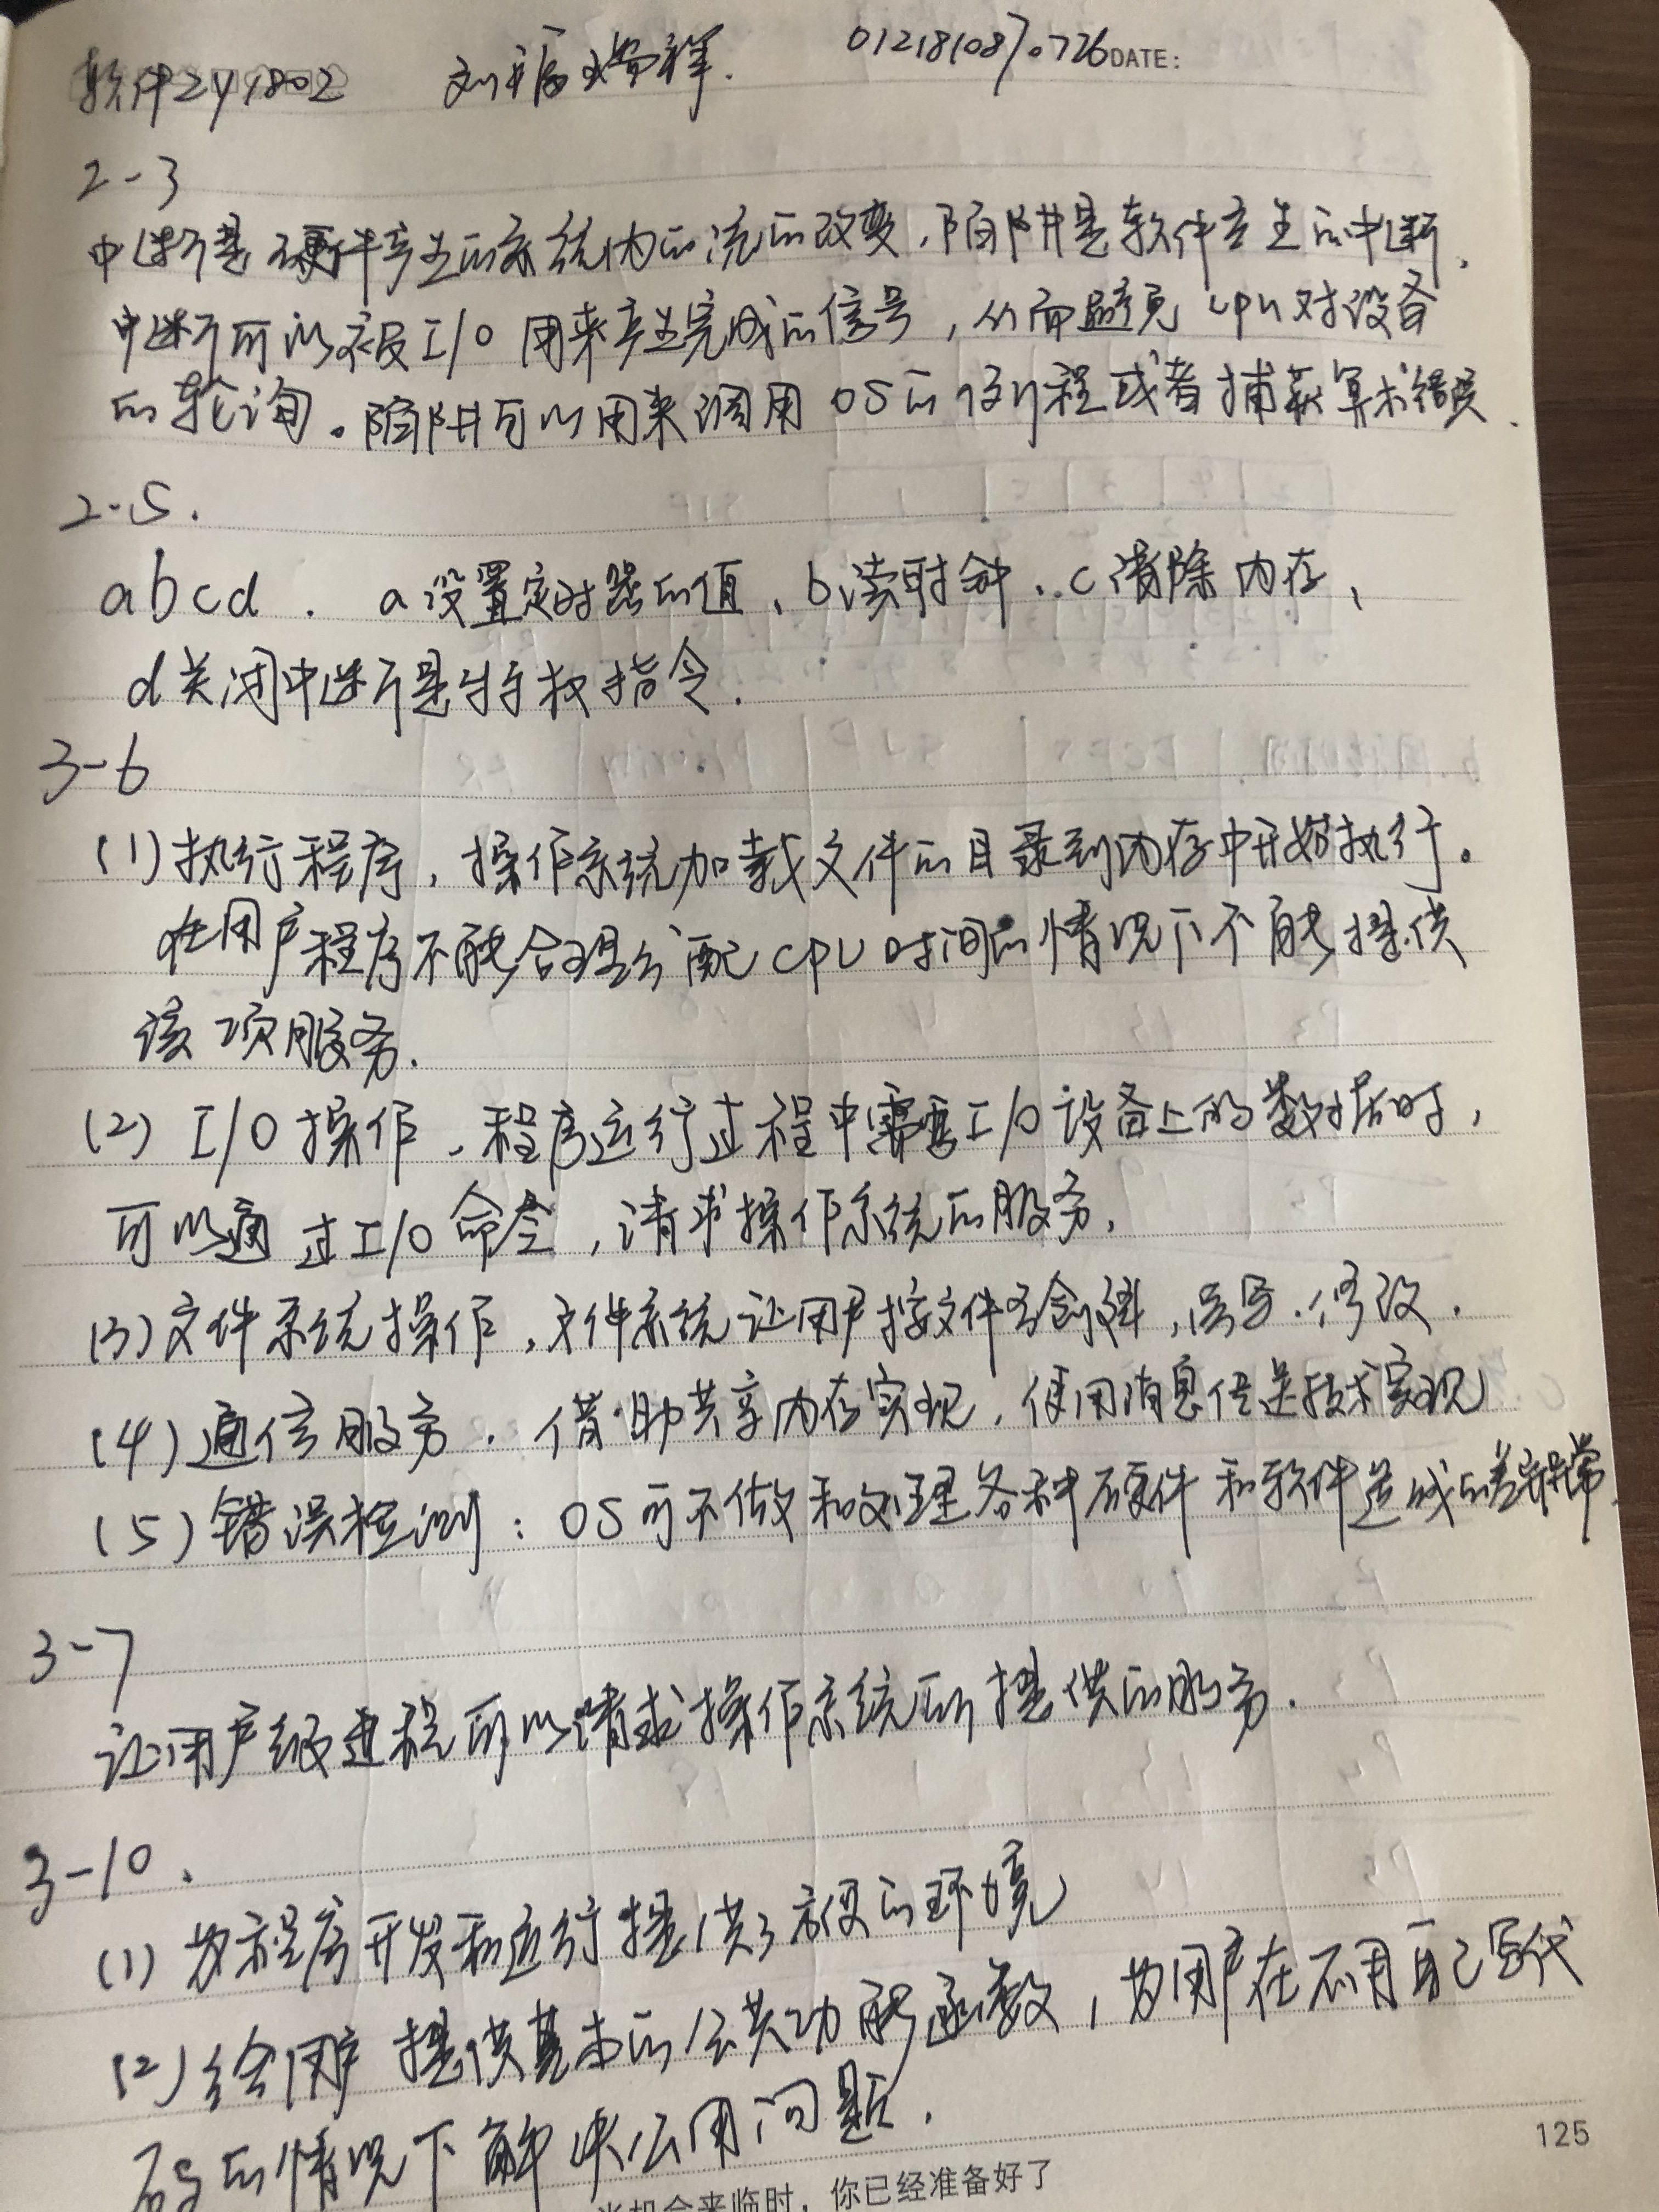 软件zy1802 刘福 祥. 0121810870726 DATE:
2-3
中断是硬件产生的系统内的流的改变,陷阱是软件产生的中断.
中断可以被I/O用来产生完成的信号,从而避免cpu对设备
的轮询。陷阱可以用来调用OS的例程或者捕获算术错误.
2-5.
abcd. a设置定时器的值、b读时钟、c清除内存、
d关闭中断是特权指令.
3-6
(1)执行程序,操作系统加载文件的目录到内存中开始执行。
在用户程序不能合理分配CPU时间的情况下不能提供
该项服务.
(2) I/O操作,程序运行过程中需要I/O设备上的数据时,
可以通过I/O命令,请求操作系统的服务,
(3)文件系统操作,文件系统让用户按文件名创建,读写.修改.
(4)通信服务. 借助共享内存实现,使用消息传送技术实现
(5)错误检测:OS可不做和处理各种硬件和软件造成的差异异常.
3-7
让用户级进程可以请求操作系统所提供的服务.
3-10.
(1)为程序开发和运行提供了方便的环境
(2)给用户提供基本的公共功能函数,为用户在不用自己写代
码的情况下解决公用问题.
当机会来临时,你已经准备好了
125